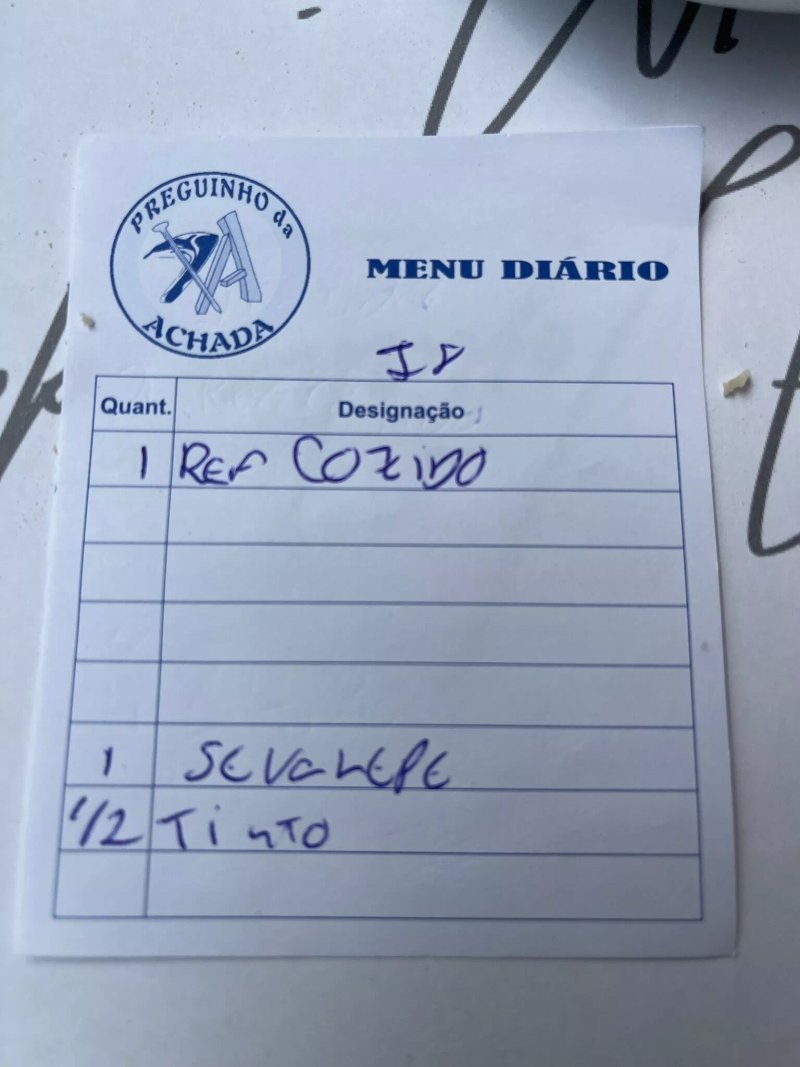 PREGUINHO da
ACHADA
MENU DIÁRIO
Quant. Designação
1 REF COZIDO
1
1/2 TINTO